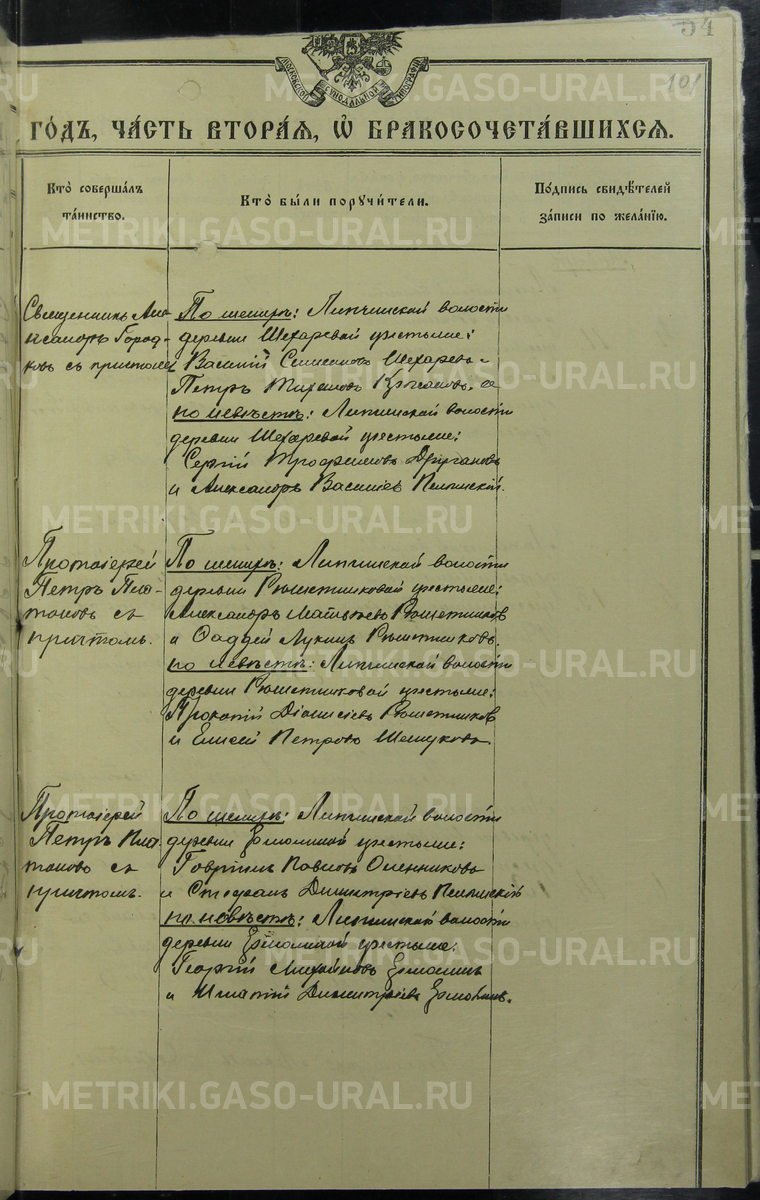 54
101
МОСКОВСКОЙ СѴНОДАЛЬНОЙ ТИПОГРАФІИ
ГО́ДЪ, ЧА́СТЬ ВТОРА́Ѧ, Ѡ҆ БРАКОСОЧЕТА́ВШИХСѦ.
Кто̀ соверша́лъ
та́инство.
Кто̀ бы́ли порꙋчи́тели.
По́дпись свидѣ́телей
за́писи по жела́нїю.
Священникъ Але-
ксандръ Город-
ковъ съ причтомъ
По женихѣ: Липчинской волости
деревни Шехаревой крестьяне:
Василій Симеоновъ Шехаревъ
Петръ Тихоновъ
по невѣстѣ: Липчинской волости
деревни Шехаревой крестьяне:
Сергій Трофимовъ Дрягановъ
и Александръ Василіевъ Пелымскій.
Протоіерей
Петръ Пла-
тоновъ съ
причтомъ.
По женихѣ: Липчинской волости
деревни Рѣшетниковой крестьяне:
Александръ Матѳѣевъ Рѣшетниковъ
и Ѳаддей Лукинъ Рѣшетниковъ.
по невѣстѣ: Липчинской волости
деревни Рѣшетниковой крестьяне:
Прокопій Діонисіевъ Рѣшетниковъ
и Елисей Петровъ Шешуковъ.
Протоіерей
Петръ Пла-
тоновъ съ
причтомъ.
По женихѣ: Липчинской волости
деревни Ермолиной крестьяне:
Гавріилъ Павловъ Оленниковъ
и Стефанъ Димитріевъ Пелымскій
по невѣстѣ: Липчинской волости
деревни Ермолиной крестьяне:
Георгій Михайловъ Ермолинъ
и Игнатій Димитріевъ Ермолинъ.
METRIKI.GASO-URAL.RU